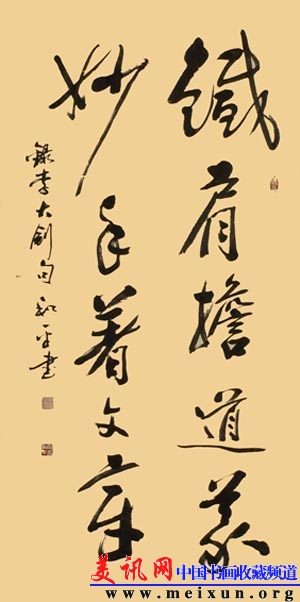 鐵肩擔道義
妙手著文章
錄李大釗句 和平書
美讯网 中国书画收藏频道
www.meixun.org